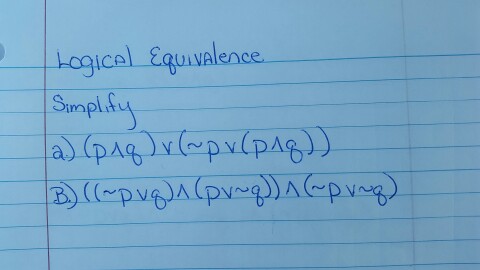 Logical Equivalence
Simplify
a.) (p∧q) ∨ (~p ∨ (p∧q))
B.) ((~p∨q) ∧ (p∨~q)) ∧ (~p∨~q)